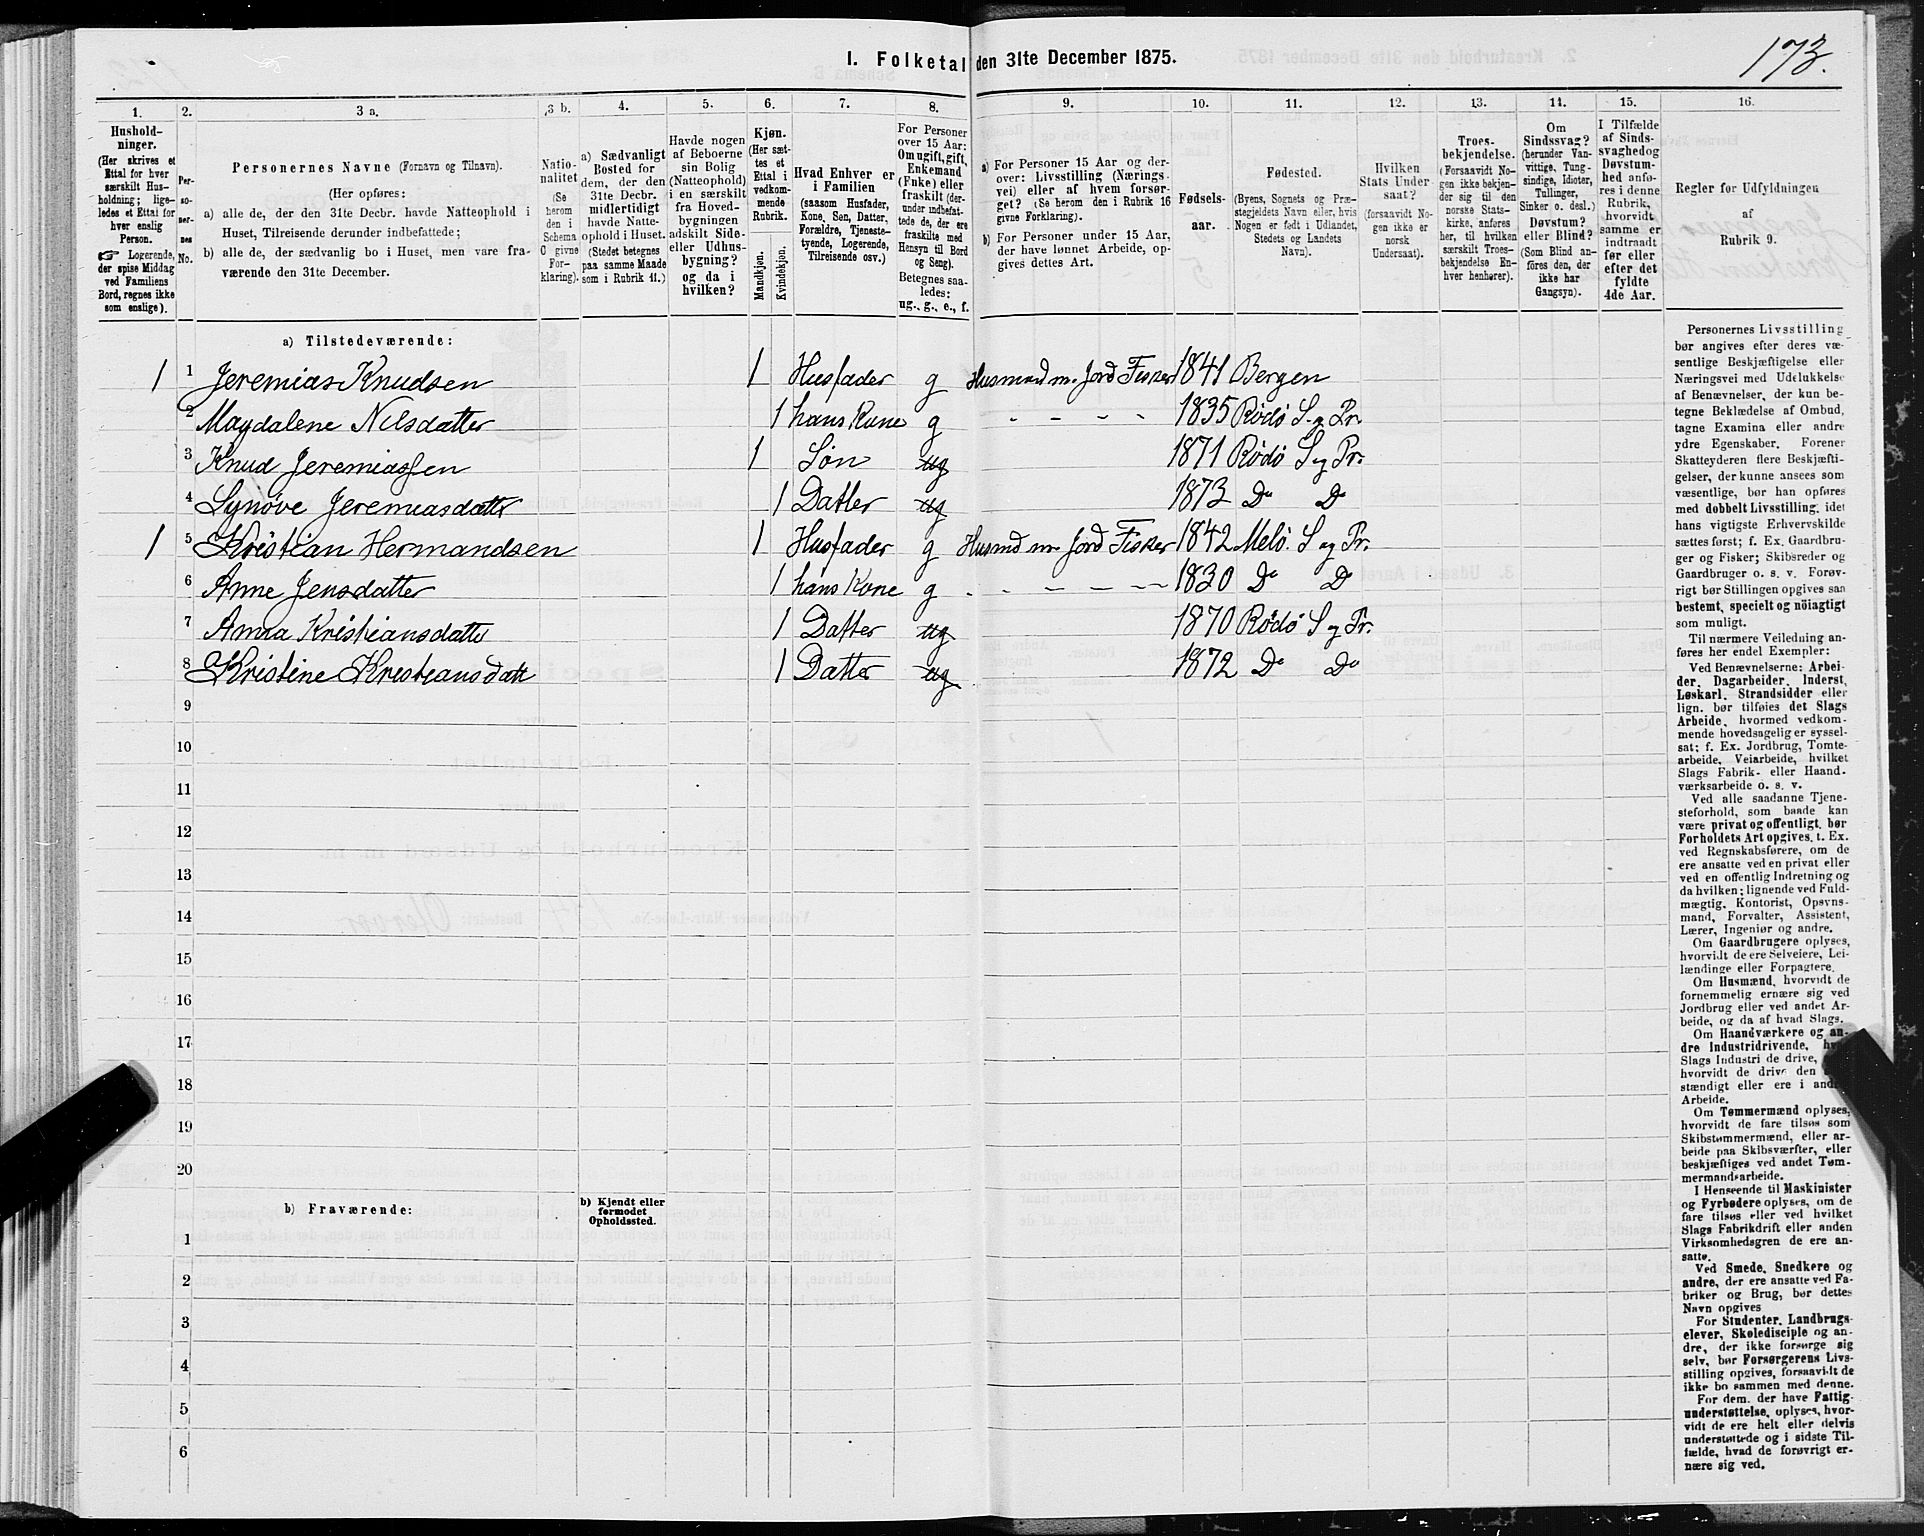 173.
I. Folketal den 31te December 1875.
1.
Hushold-
ninger.
(Her skrives et
Ettal for hver
særskilt Hus-
holdning; lige-
ledes et Ettal for
hver enslig
Person.
☞ Logerende,
der spise Middag
ved Familiens
Bord, regnes ikke
som enslige).
2.
Per-
soner-
nes
No.
3 a.
Personernes Navne (Fornavn og Tilnavn).
(Her opføres:
a) alle de, der den 31te Decbr. havde Natteophold i
Huset, Tilreisende derunder indbefattede;
b) alle de, der sædvanlig bo i Huset, men vare fra-
værende den 31te December.
3 b.
Natio-
nalitet
(Se
herom
den i
Schema
O givne
For-
klaring).
4.
a) Sædvanligt
Bosted for
dem, der den
31te Decbr.
midlertidigt
havde Natte-
ophold i Huset.
(Stedet betegnes
paa samme Maade
som i Rubrik 11.)
5.
Havde nogen
af Beboerne
sin Bolig
(Natteophold)
i en særskilt
fra Hoved-
bygningen
adskilt Side-
eller Udhus-
bygning?
og da i
hvilken?
6.
Kjøn.
(Her sæt-
tes et
Ettal i
vedkom-
mende
Rubrik.
Mandkjøn.
Kvindekjøn.
7.
Hvad Enhver er
i Familien
(saasom Husfader,
Kone, Søn, Datter,
Forældre, Tjeneste-
tyende, Logerende,
Tilreisende osv.)
8.
For Personer
over 15 Aar:
Om ugift, gift,
Enkemand
(Enke) eller
fraskilt (der-
under indbefat-
tede de, der ere
fraskilte med
Hensyn til Bord
og Seng).
Betegnes saa-
ledes:
ug., g., e., f.
9.
a) For Personer 15 Aar og der-
over: Livsstilling (Nærings-
vei) eller af hvem forsør-
get? (Se herom den i Rubrik 16
givne Forklaring).
b) For Personer under 15 Aar,
der have lønnet Arbeide, op-
gives dettes Art.
10.
Fødsels-
aar.
11.
Fødested.
(Byens, Sognets og Præ-
stegjeldets Navn eller, hvis
Nogen er født i Udlandet,
Stedets og Landets
Navn).
12.
Hvilken
Stats Under-
saat?
(forsaavidt No-
gen ikke er
norsk
Undersaat).
13.
Troes-
bekjendelse.
(Forsaavidt No-
gen ikke bekjen-
der sig til den
norske Stats-
kirke, anføres
her, til hvilken
særskilt Troes-
bekjendelse En-
hver henhører).
14.
Om
Sindssvag?
(herunder Van-
vittige, Tung-
sindige, Idioter,
Tullinger,
Sinker o. desl.)
Døvstum?
eller Blind?
(Som Blind an-
føres den, der
ikke har
Gangsyn).
15.
I Tilfælde
af Sinds-
svaghed og
Døvstum-
hed anfø-
res i denne
Rubrik,
hvorvidt
samme er
indtraadt
før eller
efter det
fyldte
4de Aar.
16.
Regler for Udfyldningen
af
Rubrik 9.
a) Tilstedeværende:
1 1 Jeremias Knudsen 1 Husfader g Husmand m. Jord Fisker 1841 Bergen
2 Magdalene Nilsdatter 1 hans Kone g - - - - 1835 Rødø S. og Pr.
3 Knud Jeremiassen 1 Søn ug 1871 Rødø S og Pr.
4 Synøve Jeremiasdatter 1 Datter ug 1873 Do Do
1 5 Kristian Hermandsen 1 Husfader g Husmd m. Jord Fisker 1842 Melø. S og Pr.
6 Anne Jensdatter 1 hans Kone g - - - - - 1830 Do Do
7 Anna Kristiansdatter 1 Datter ug 1870 Rødø S og Pr.
8 Kristine Kristiansdatt 1 Datter ug 1872 Do Do
9
10
11
12
13
14
15
16
17
18
19
20
b) Fraværende:
b) Kjendt eller
formodet
Opholdssted.
1
2
3
4
5
6
Personernes Livsstilling
bør angives efter deres væ-
sentlige Beskjæftigelse eller
Næringsvei med Udelukkelse
af Benævnelser, der kun be-
tegne Beklædelse af Ombud,
tagne Examina eller andre
ydre Egenskaber. Forener
Skatteyderen flere Beskjæfti-
gelser, der kunne ansees som
væsentlige, bør han opføres
med dobbelt Livsstilling, idet
hans vigtigste Erhvervskilde
sættes først; f. Ex. Gaardbru-
ger og Fisker; Skibsreder og
Gaardbruger o. s. v. Forøv-
rigt bør Stillingen opgives saa
bestemt, specielt og nöiagtigt
som muligt.
Til nærmere Veiledning an-
føres her endel Exempler:
Ved Benævnelserne: Arbei-
der, Dagarbeider, Inderst,
Løskarl, Strandsidder eller
lign. bør tilføies det Slags
Arbeide, hvormed vedkom-
mende hovedsagelig er syssel-
sat; f. Ex. Jordbrug, Tomte-
arbeide, Veiarbeide, hvilket
Slags Fabrik- eller Haand-
værksarbeide o. s. v.
Ved alle saadanne Tjene-
steforhold, som baade kan
være privat og offentligt, bør
Forholdets Art opgives, f. Ex.
ved Regnskabsførere, om de
ere ansatte ved en privat eller
ved en offentlig Indretning og
da hvilken; lignende ved Fuld-
mægtig, Kontorist, Opsyns-
mand, Forvalter, Assistent,
Lærer, Ingeniør og andre.
Om Gaardbrugere oplyses,
hvorvidt de ere Selveiere, Lei-
lændinge eller Forpagtere.
Om Husmænd, hvorvidt de
fornemmelig ernære sig ved
Jordbrug eller ved andet Ar-
beide, og da af hvad Slags.
Om Haandværkere og an-
dre Industridrivende,
Slags Industri de drive,
hvorvidt de drive den
stændigt eller ere i
Arbeide.
Om Tømmermænd oplyses,
hvorvidt de fare tilsøs som
Skibstømmermænd, eller ar-
beide paa Skibsværfter, eller
beskjæftiges ved andet Tøm-
mermandsarbeide.
I Henseende til Maskinister
og Fyrbødere oplyses, om de
fare tilsøs eller ved hvilket
Slags Fabrikdrift eller anden
Virksomhedsgren de ere an-
satte.
Ved Smede, Snedkere og
andre, der ere ansatte ved Fa-
briker og Brug, bør dettes
Navn opgives
For Studenter, Landbrugs-
elever, Skoledisciple og an-
dre, der ikke forsørge sig
selv, bør Forsørgerens Livs-
stilling opgives, forsaavidt de
ikke bo sammen med denne.
For dem, der have Fattig-
understøttelse, oplyses, hvor-
vidt de ere helt eller delvis
understøttede og i sidste Til-
fælde, hvad de forøvrigt er-
nære sig ved.